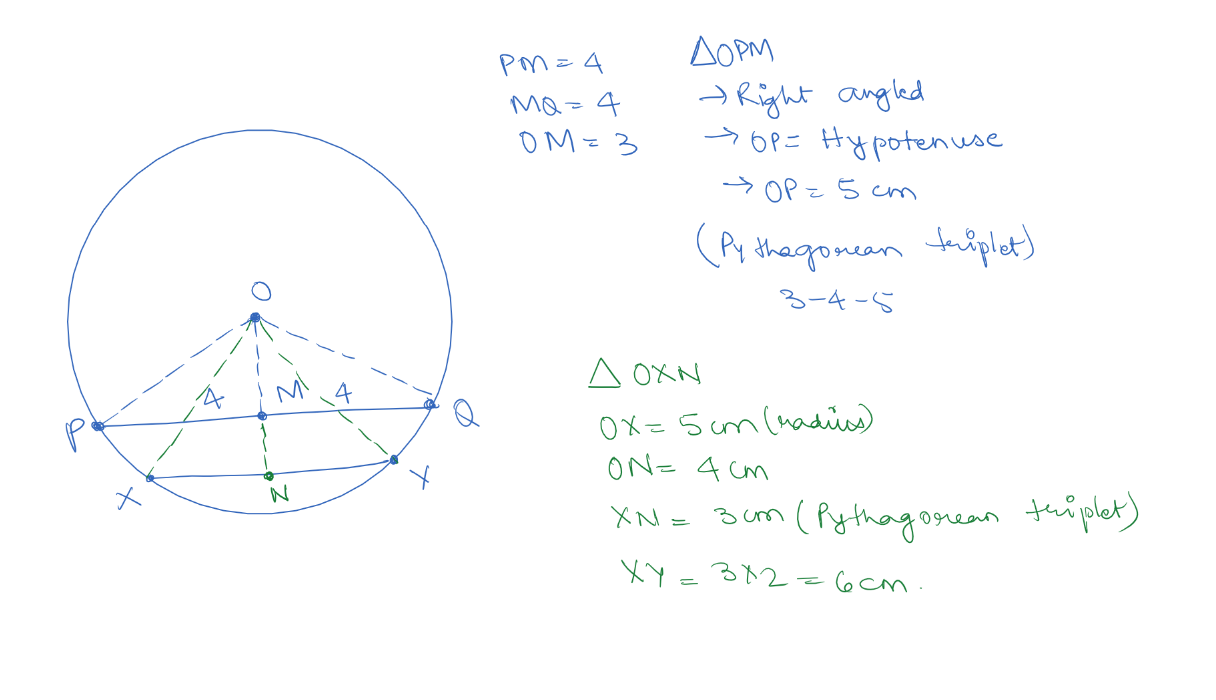 PM = 4
MQ = 4
OM = 3
△OPM
→ Right angled
→ OP = Hypotenuse
→ OP = 5 cm
(Pythagorean triplet)
3-4-5
O
4
M
4
P
Q
X
N
Y
△ OXN
OX = 5 cm (radius)
ON = 4 cm
XN = 3 cm (Pythagorean triplet)
XY = 3×2 = 6 cm.